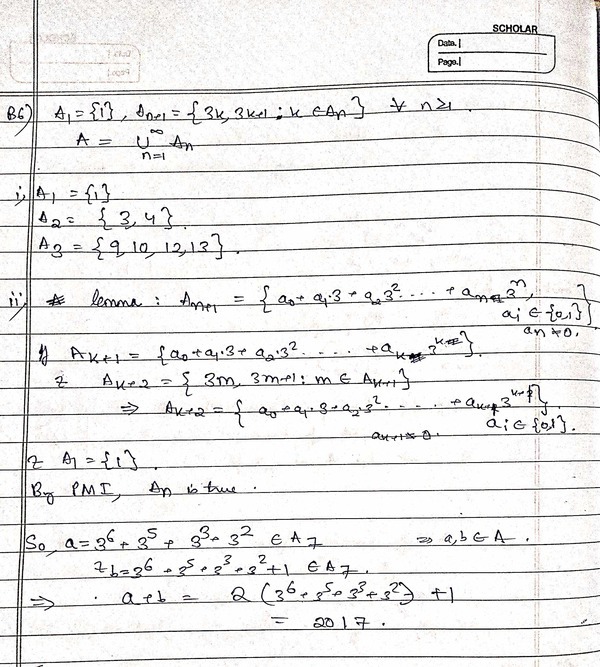 SCHOLAR
Date.
Page.
B6) A₁ = {1}, Aₙ₊₁ = {3k, 3k+1 ; k ∈ Aₙ} ∀ n ≥ 1.
A = ∪_{n=1}^∞ Aₙ
i) A₁ = {1}
A₂ = {3, 4}.
A₃ = {9, 10, 12, 13}.
ii) lemma : Aₙ₊₁ = {a₀ + a₁.3 + a₂3² . . . . . + aₙ3ⁿ,
aᵢ ∈ {0,1}}
aₙ ≠ 0.
If Aₖ₊₁ = {a₀ + a₁.3 + a₂.3² . . . . . + aₖ3ᵏ}.
& Aₖ₊₂ = {3m, 3m+1 : m ∈ Aₖ₊₁}
⇒ Aₖ₊₂ = {a₀ + a₁.3 + a₂.3² . . . . . + aₖ₊₁3ᵏ⁺¹}.
aₖ₊₁ ≠ 0. aᵢ ∈ {0,1}.
& A₁ = {1}.
By PMI, Aₙ is true.
So, a = 3⁶ + 3⁵ + 3³ + 3² ∈ A₇ ⇒ a,b ∈ A.
& b = 3⁶ + 3⁵ + 3³ + 3² + 1 ∈ A₇.
⇒ a+b = 2 (3⁶ + 3⁵ + 3³ + 3²) + 1
= 2017.